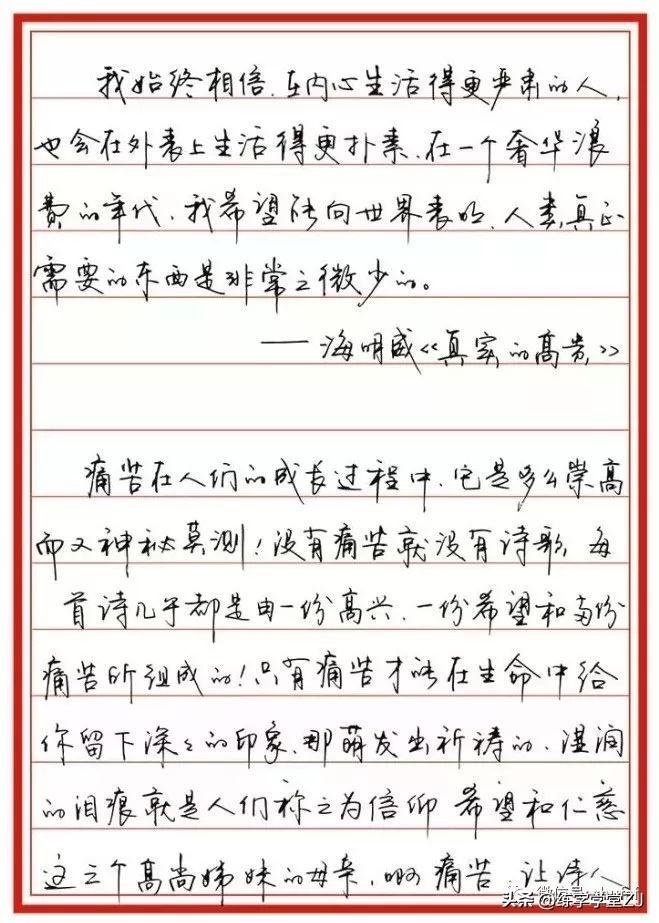 我始终相信,在内心生活得更严肃的人,
也会在外表上生活得更朴素,在一个奢华浪
费的年代,我希望能向世界表明,人类真正
需要的东西是非常之微少的。
——海明威《真实的高贵》
痛苦在人们的成长过程中,它是多么崇高
而又神秘莫测!没有痛苦就没有诗歌 每
首诗几乎都是由一份高兴,一份希望和两份
痛苦所组成的!只有痛苦才能在生命中给
你留下深々的印象,那萌发出祈祷的,湿润
的泪痕就是人们称之为信仰 希望和仁慈
这三个高尚姊妹的母亲,啊 痛苦,让诗人
头条@练字学堂ZJ